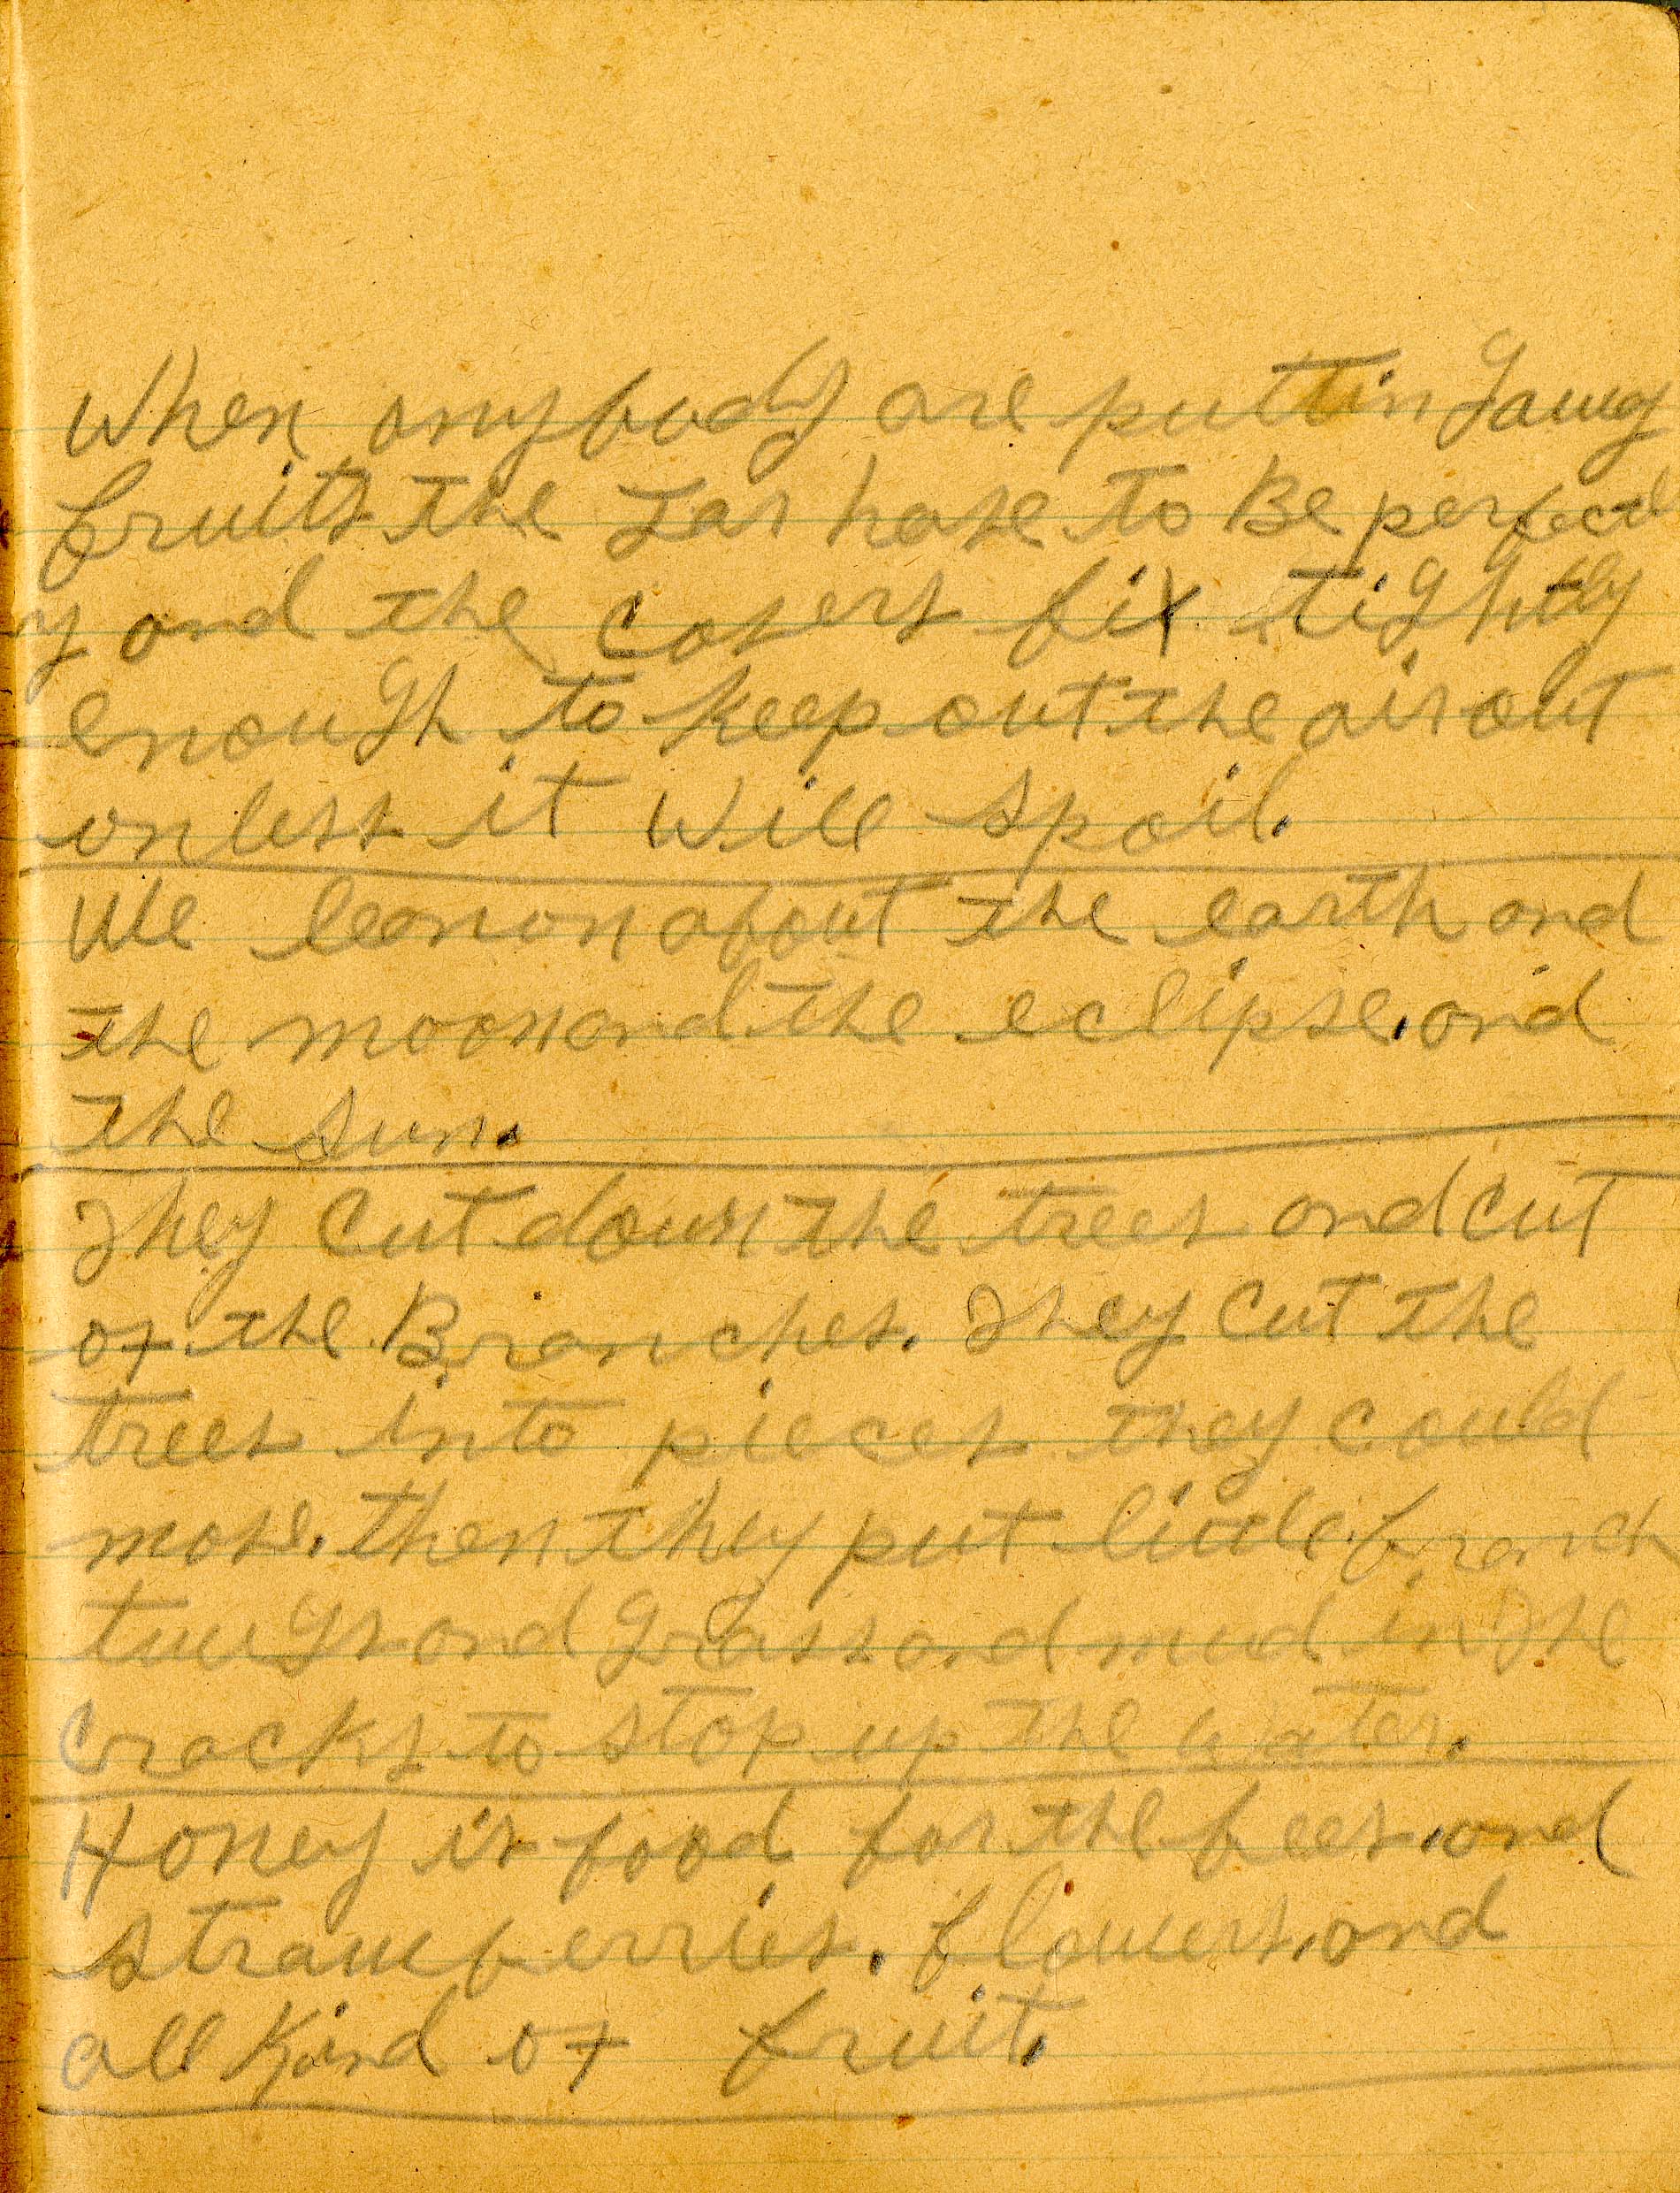 When anybody are putting away
fruits the Jar have to Be perfectl
y and the covers fix tightly
enough to keep out the air out
unless it Will spoil.
We learnon about the earth and
the moon and the eclipse, and
the sun.
They Cut down the trees and cut
of the Branches. They Cut the
trees into pieces they could
move. then they put little branch
twigs and grass and mud in the
cracks to stop up the water.
Honey is food for the bees, and
strawberries. flowers, and
all Kind of fruit.